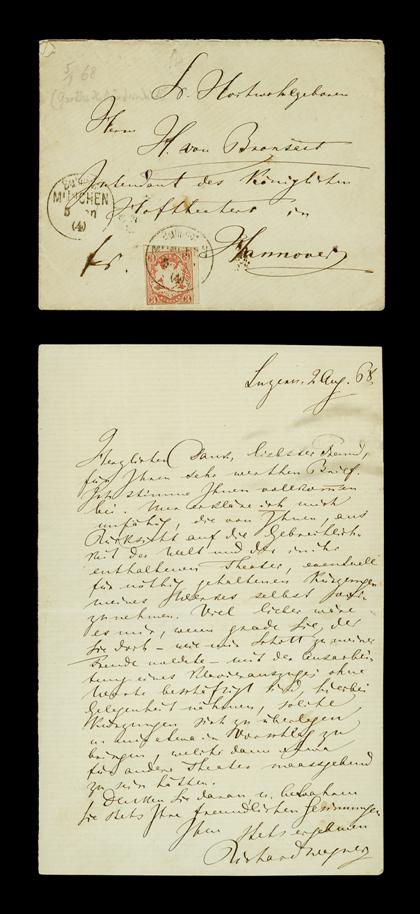 5/1 68
Sr. Hochwohlgeboren
Herrn
H. von Bronsart
Intendant des Königlichen
Hoftheaters in
fr. Hannover
MÜNCHEN
5
(4)
3 3
Luzern. 2 Aug. 68.
Herzlichen Dank, liebster Freund,
für Ihren sehr werthen Brief.
Ich stimme Ihnen vollkommen
bei. Nur erkläre ich mich
unfähig, die von Ihnen, aus
Rücksicht auf die Gebrechlich-
keit der Welt und der in ihr
enthaltenen Theater, eventuell
für nöthig gehaltenen Kürzungen
meines Werkes selbst vorzu-
nehmen. Viel lieber wäre
es mir, wenn grade Sie, der
Sie doch – wie mir Schott zu meiner
Freude meldete – mit der Ausarbei-
tung eines Klavierauszuges ohne
Worte beschäftigt sind, hierbei
Gelegenheit nähmen, solche
Kürzungen sich zu überlegen
u. mir etwa in Vorschlag zu
bringen, welche dann
für andere Theater maassgebend
zu sein hätten.
Denken Sie daran u. bewahren
Sie stets Ihre freundlichen Gesinnungen
Ihrem stets ergebenen
Richard Wagner